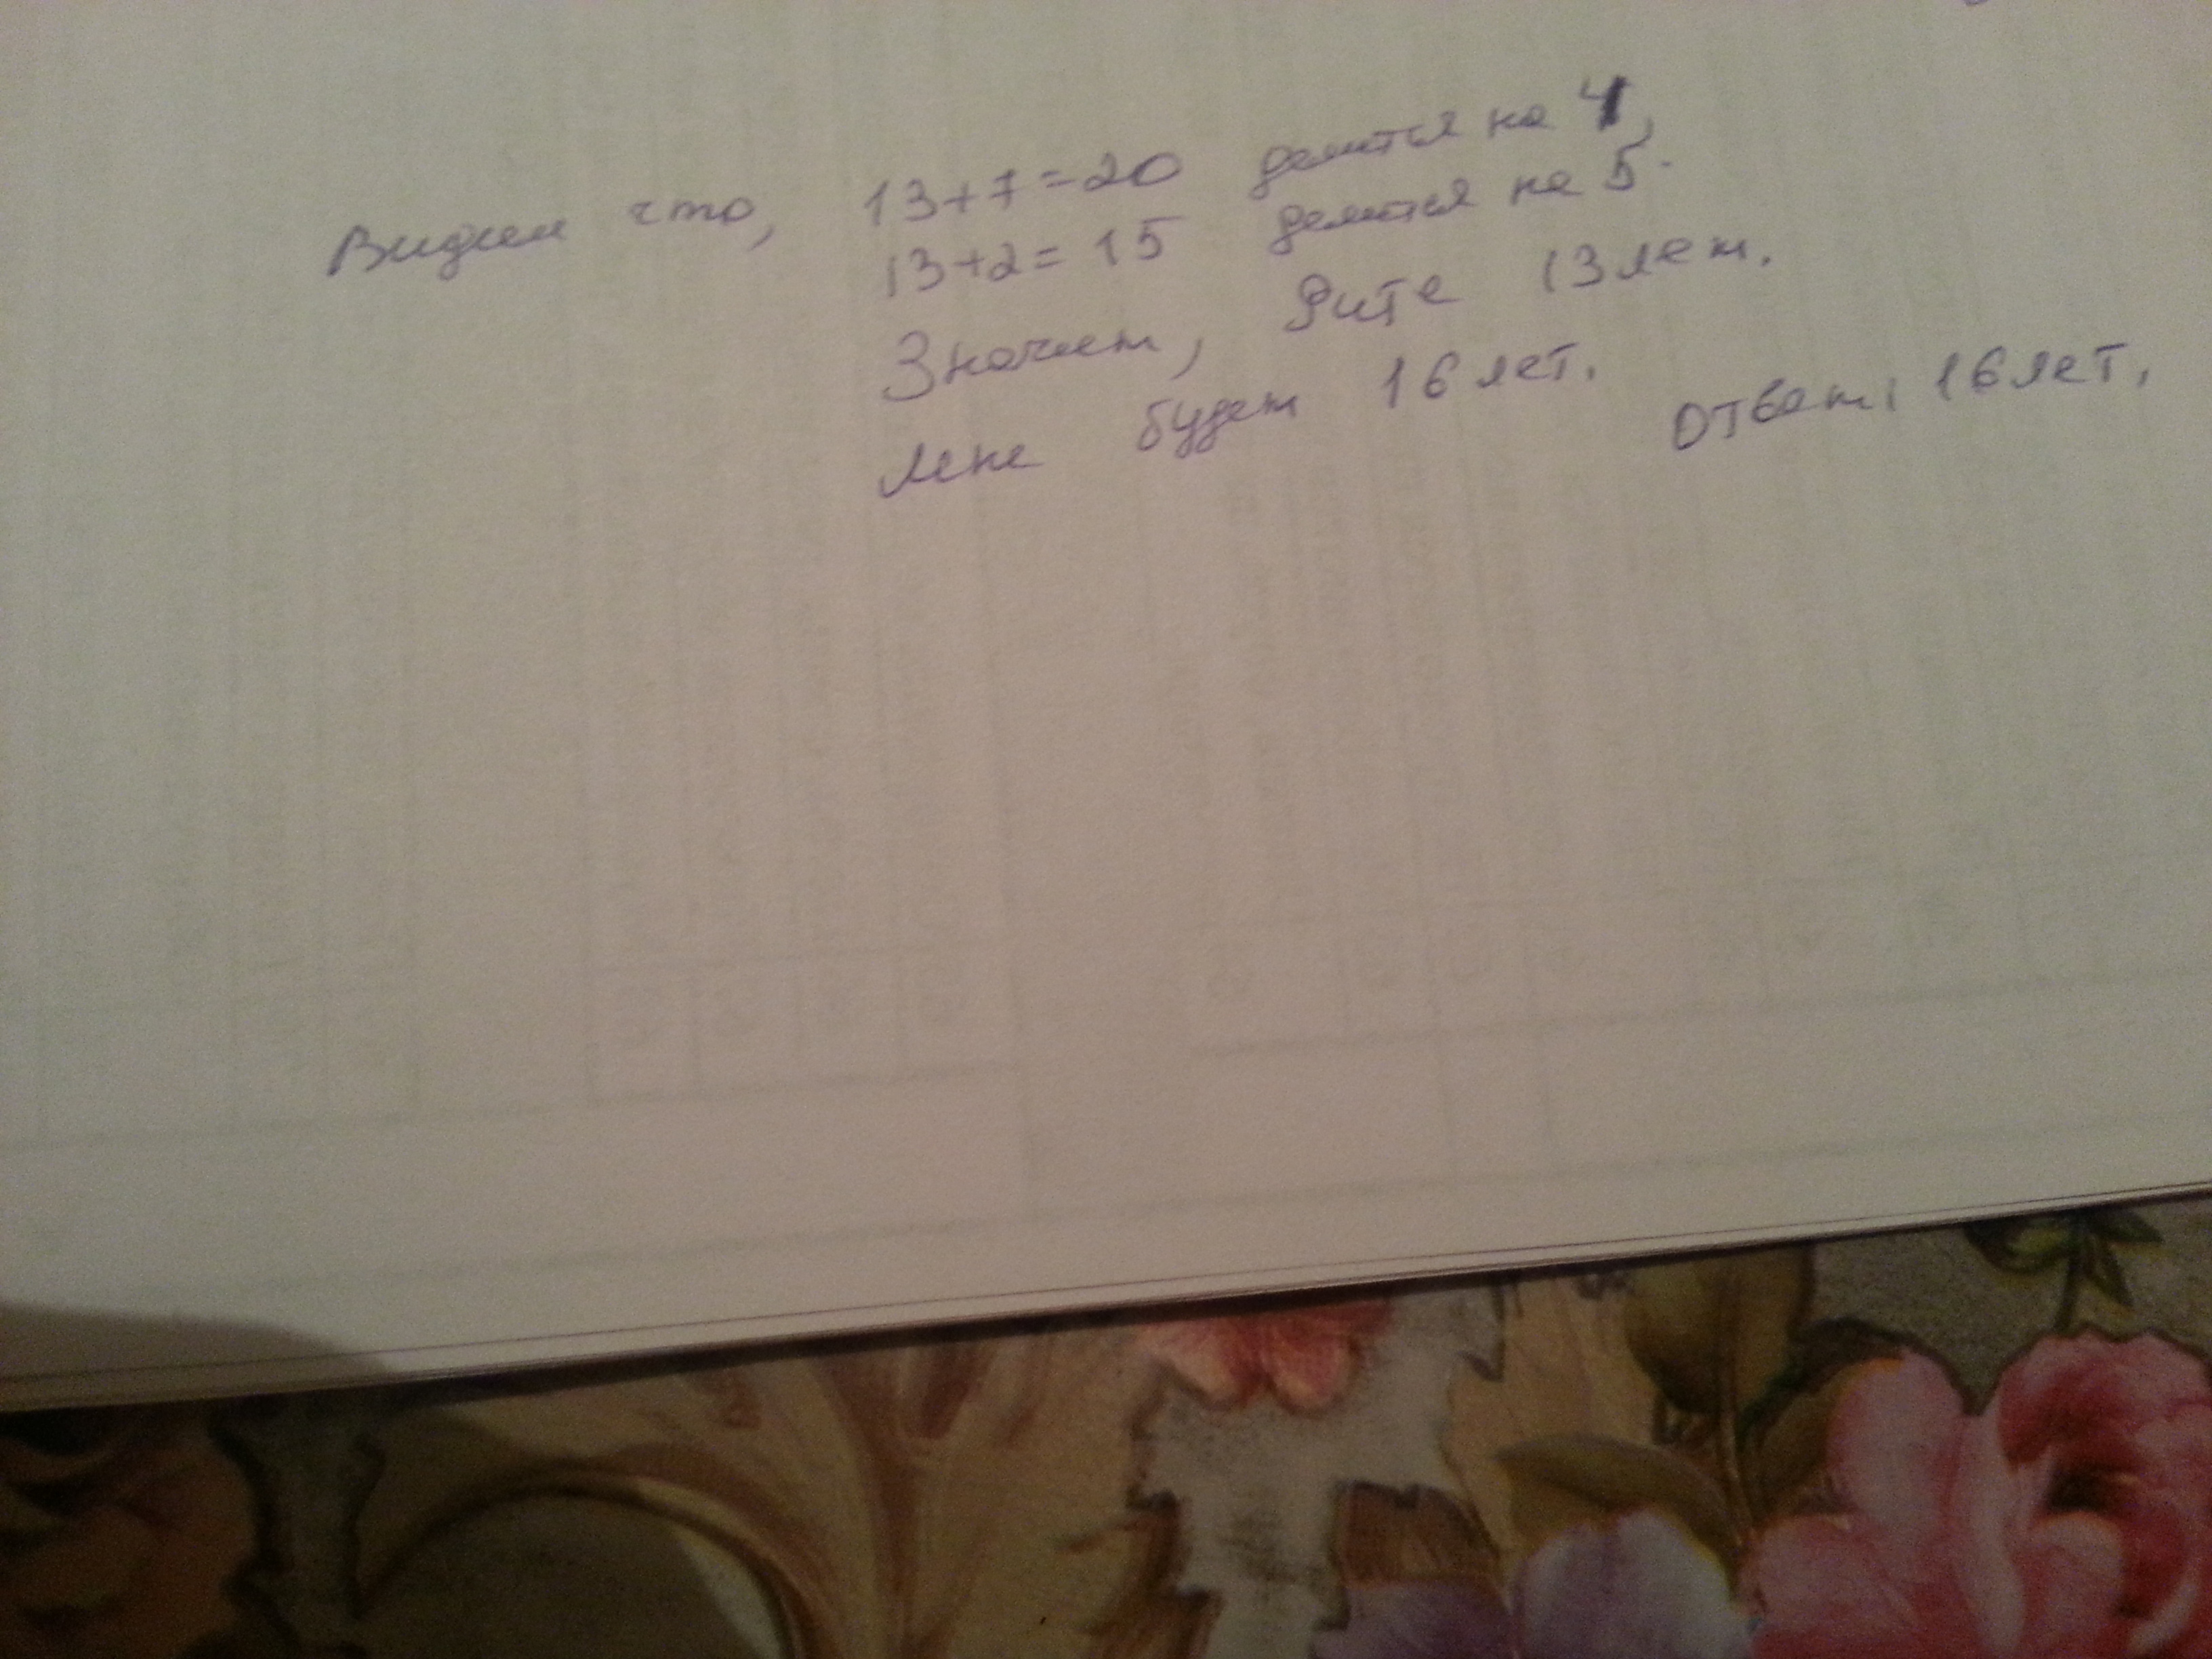 Видим что, 13+7=20 делится на 4,
13+2=15 делится на 5.
Значит, Рите 13 лет.
Мне будет 16 лет.
Ответ: 16 лет.